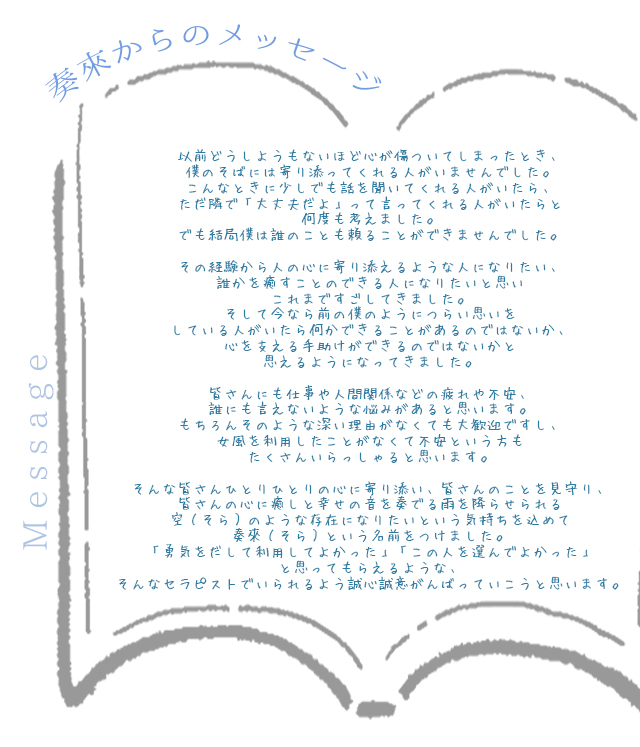 奏來からのメッセージ
Message
以前どうしようもないほど心が傷ついてしまったとき、
僕のそばには寄り添ってくれる人がいませんでした。
こんなときに少しでも話を聞いてくれる人がいたら、
ただ隣で「大丈夫だよ」って言ってくれる人がいたらと
何度も考えました。
でも結局僕は誰のことも頼ることができませんでした。
その経験から人の心に寄り添えるような人になりたい、
誰かを癒すことのできる人になりたいと思い
これまですごしてきました。
そして今なら前の僕のようにつらい思いを
している人がいたら何かできることがあるのではないか、
心を支える手助けができるのではないかと
思えるようになってきました。
皆さんにも仕事や人間関係などの疲れや不安、
誰にも言えないような悩みがあると思います。
もちろんそのような深い理由がなくても大歓迎ですし、
女風を利用したことがなくて不安という方も
たくさんいらっしゃると思います。
そんな皆さんひとりひとりの心に寄り添い、皆さんのことを見守り、
皆さんの心に癒しと幸せの音を奏でる雨を降らせられる
空（そら）のような存在になりたいという気持ちを込めて
奏來（そら）という名前をつけました。
「勇気をだして利用してよかった」「この人を選んでよかった」
と思ってもらえるような、
そんなセラピストでいられるよう誠心誠意がんばっていこうと思います。